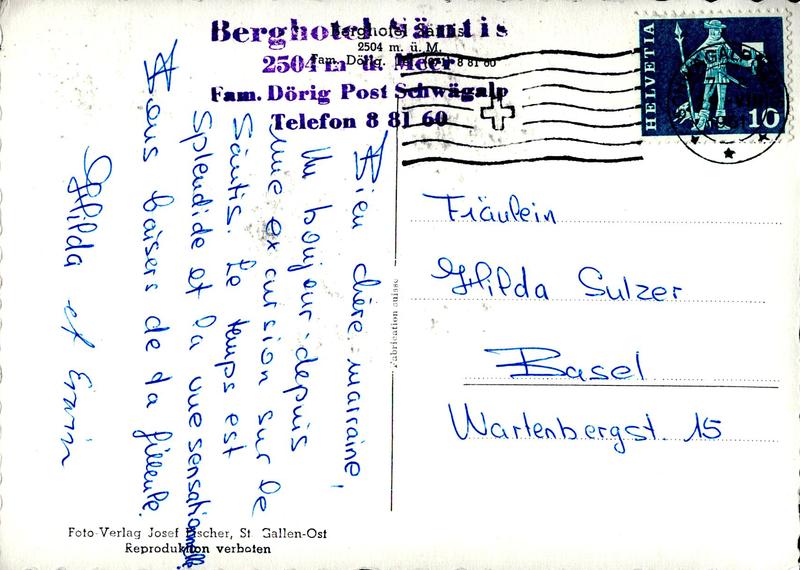 Berghotel Säntis
2504 m ü. Meer
Fam. Dörig Post Schwägalp
Telefon 8 81 60
Berghotel Säntis
2504 m. ü. M.
Fam. Dörig. Tel. 8 81 60
HELVETIA
10
Bien chère marraine,
Un bonjour depuis
une excursion sur le
Säntis. Le temps est
splendide et la vue sensationnelle
Bons baisers de ta filleule.
Hilda et Erwin
Fabrication suisse
Fräulein
Hilda Sulzer
Basel
Wartenbergst. 15
Foto-Verlag Josef Fischer, St. Gallen-Ost
Reproduktion verboten